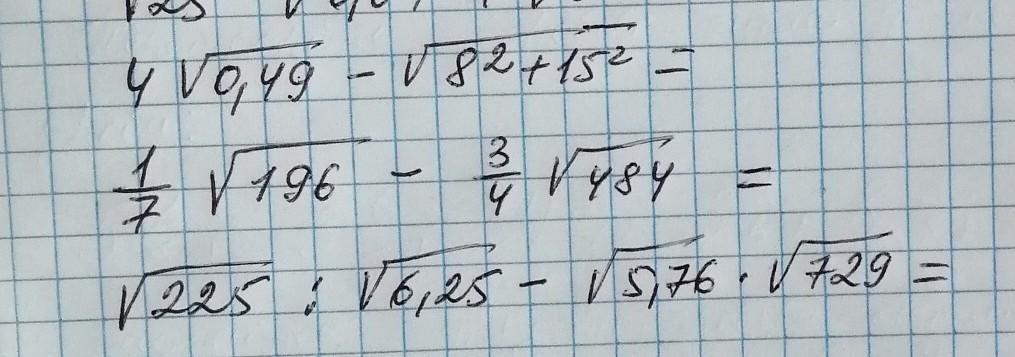 4√0,49 - √8²+15² =
1/7 √196 - 3/4 √484 =
√225 : √6,25 - √5,76 · √729 =